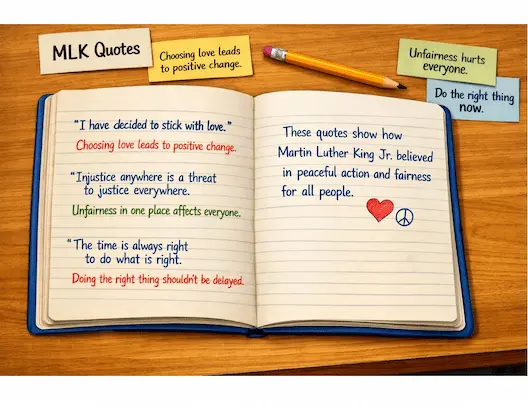 MLK Quotes
Choosing love leads
to positive change.
Unfairness hurts
everyone.
Do the right thing
now.
"I have decided to stick with love."
Choosing love leads to positive change.
"Injustice anywhere is a threat
to justice everywhere.
Unfairness in one place affects everyone.
"The time is always right
to do what is right.
Doing the right thing shouldn't be delayed.
These quotes show how
Martin Luther King Jr. believed
in peaceful action and fairness
for all people.